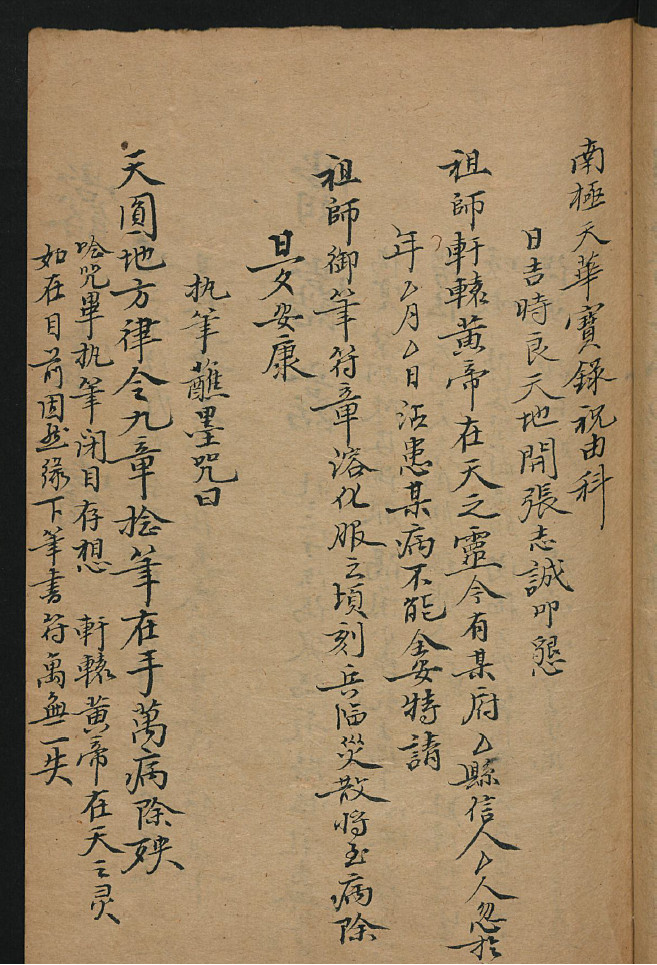 南極天華寶錄祝由科
日吉時良天地開張志誠叩懇
祖師軒轅黃帝在天之靈今有某府厶縣信人厶人忽於
年厶月厶日沾患某病不能全安特請
祖師御筆符章溶化服之頃刻兵臨災散將至病除
安康
执筆蘸墨咒曰
天圓地方律令九章捻筆在手萬病除殃
唸咒畢执筆闭目存想 軒轅黃帝在天之灵
如在目前因然後下筆書符萬無一失